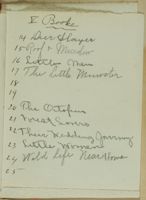 V Books
14 Deer Slayer
15 Prof &
16 Little Men
17 The Little Minister
18
19
20 The Octopus
21 Forest Lovers
22 Their Wedding Journey
23 Little Women
24 Wild Life Near Home
25